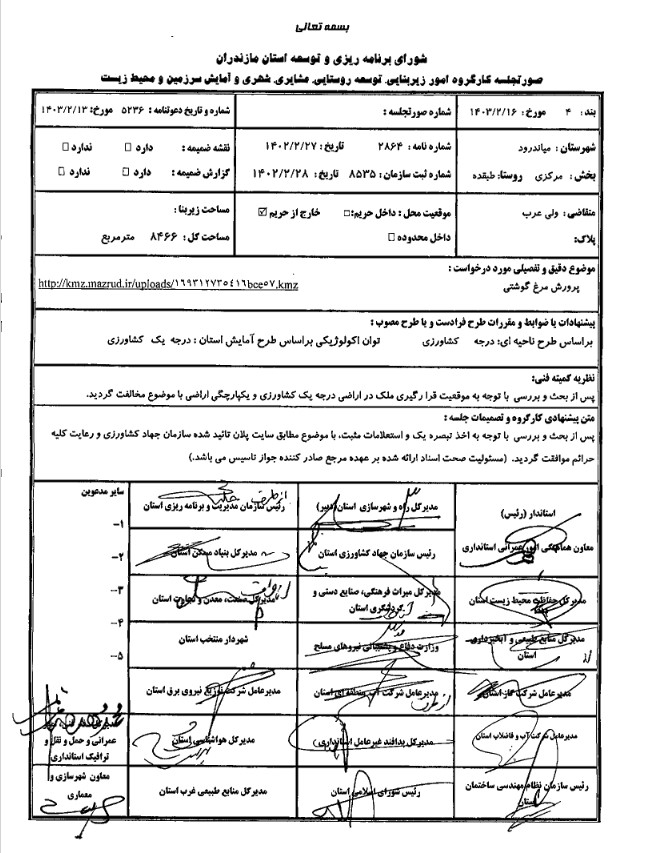 بسمه تعالی
شورای برنامه ریزی و توسعه استان مازندران
صورتجلسه کارگروه امور زیربنایی، توسعه روستایی، عشایری، شهری و آمایش سرزمین و محیط زیست
بند: ۴ مورخ: ۱۴۰۳/۲/۱۶
شماره صورتجلسه :
شماره و تاریخ دعوتنامه : ۵۲۳۶ مورخ: ۱۴۰۳/۲/۱۳
شهرستان : میاندرود
شماره نامه: ۲۸۶۴ تاریخ: ۱۴۰۲/۲/۲۷
نقشه ضمیمه : دارد ☐ ندارد ☐
بخش: مرکزی روستا: طبقده
شماره ثبت سازمان: ۸۵۳۵ تاریخ: ۱۴۰۲/۲/۲۸
گزارش ضمیمه : دارد ☐ ندارد ☐
متقاضی: ولی عرب
موقعیت محل : داخل حریم:☐ خارج از حریم ☑
مساحت زیربنا :
پلاک:
داخل محدوده ☐
مساحت کل: ۸۴۶۶ مترمربع
موضوع دقیق و تفصیلی مورد درخواست :
پرورش مرغ گوشتی
http://kmz.mazrud.ir/uploads/۱۶۹۳۱۲۷۳۵۴۱۶bce۵۷.kmz
پیشنهادات با ضوابط و مقررات طرح فرادست و یا طرح مصوب :
براساس طرح ناحیه ای: درجه کشاورزی توان اکولوژیکی براساس طرح آمایش استان : درجه یک کشاورزی
نظریه کمیته فنی:
پس از بحث و بررسی با توجه به موقعیت قرا رگیری ملک در اراضی درجه یک کشاورزی و یکپارچگی اراضی با موضوع مخالفت گردید.
متن پیشنهادی کارگروه و تصمیمات جلسه :
پس از بحث و بررسی با توجه به اخذ تبصره یک و استعلامات مثبت، با موضوع مطابق سایت پلان تائید شده سازمان جهاد کشاورزی و رعایت کلیه
حرائم موافقت گردید. (مسئولیت صحت اسناد ارائه شده بر عهده مرجع صادر کننده جواز تاسیس می باشد.)
استاندار (رئیس)
معاون هماهنگی امور عمرانی استانداری
مدیرکل راه و شهرسازی استان (دبیر)
رئیس سازمان مدیریت و برنامه ریزی استان
سایر مدعوین
۱–
رئیس سازمان جهاد کشاورزی استان
مدیرکل بنیاد مسکن استان
۲–
مدیرکل حفاظت محیط زیست استان
مدیرکل میراث فرهنگی، صنایع دستی و
گردشگری استان
مدیرکل صنعت، معدن و تجارت استان
۳–
۴–
مدیرکل منابع طبیعی و آبخیزداری
استان
وزارت دفاع و پشتیبانی نیروهای مسلح
شهردار منتخب استان
۵–
مدیرعامل شرکت گاز استان
مدیرعامل شرکت آب منطقه ای استان
مدیرعامل شرکت توزیع نیروی برق استان
مدیرعامل شرکت آب و فاضلاب استان
مدیرکل پدافند غیرعامل استانداری
مدیرکل هواشناسی استان
عمرانی و حمل و نقل و
ترافیک استانداری
رئیس سازمان نظام مهندسی ساختمان
استان
رئیس شورای اسلامی استان
مدیرکل منابع طبیعی غرب استان
معاون شهرسازی و
معماری